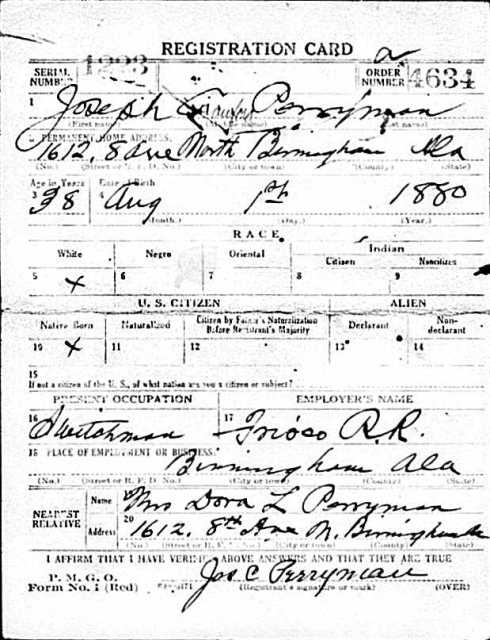 REGISTRATION CARD
SERIAL NUMBER 1223 ORDER NUMBER 4634
1 Joseph Perryman
(First name) (Middle name) (Last name)
2 PERMANENT HOME ADDRESS:
1612, 8 Ave North Birmingham Ala
(No.) (Street or R. F. D. No.) (City or town) (County) (State)
Age in Years Date of Birth
3 38 Aug 1st 1880
(Month.) (Day.) (Year.)
RACE
White Negro Oriental Indian
Citizen Noncitizen
5 x 6 7 8 9
U. S. CITIZEN ALIEN
Native Born Naturalized Citizen by Father's Naturalization Before Registrant's Majority Declarant Non-declarant
10 x 11 12 13 14
15
If not a citizen of the U. S., of what nation are you a citizen or subject?
PRESENT OCCUPATION EMPLOYER'S NAME
16 Switchman 17 Frisco R.R.
18 PLACE OF EMPLOYMENT OR BUSINESS:
Birmingham Ala
(No.) (Street or R. F. D. No.) (City or town) (County) (State)
NEAREST RELATIVE Name 19 Mrs Dora L Perryman
Address 20 1612, 8th Ave N. Birmingham
(No.) (Street or R. F. D. No.) (City or town) (County) (State)
I AFFIRM THAT I HAVE VERIFIED ABOVE ANSWERS AND THAT THEY ARE TRUE
P. M. G. O.
Form No. 1 (Red) Jos. C. Perryman
(Registrant's signature or mark) (OVER)